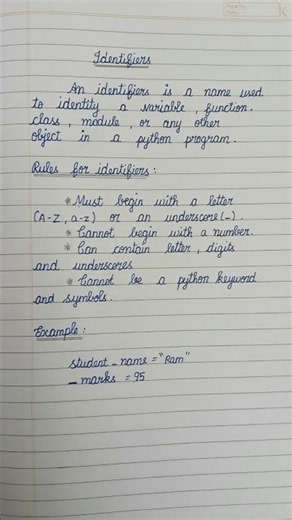 Identifiers
An identifiers is a name used
to identity a variable, function.
class, module, or any other
object in a python program.
Rules for identifiers:
* Must begin with a letter
(A-Z, a-z) or an underscore(_).
* Cannot begin with a number.
* Can contain letter, digits
and underscores
* Cannot be a python keyword
and symbols.
Example:
student_name = "Ram"
_marks = 95